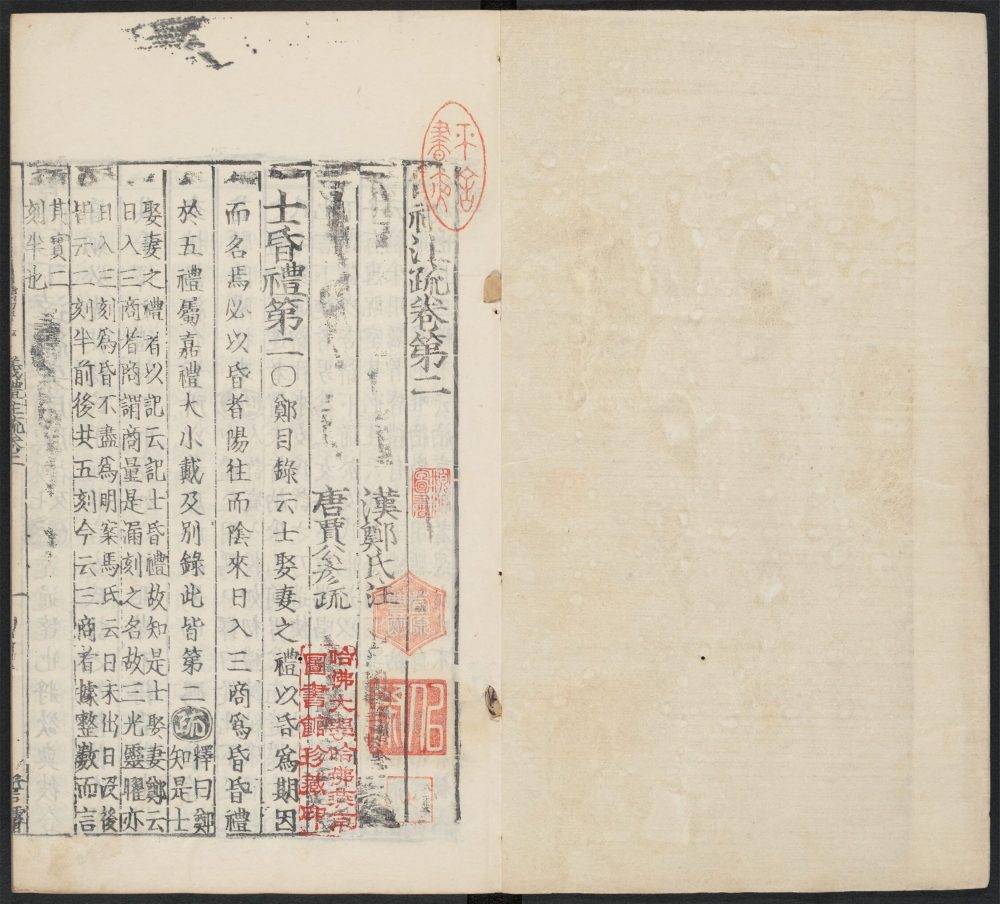 禮注疏卷第二
漢鄭氏注
唐賈公彥疏
士昏禮第二〇鄭目錄云士娶妻之禮以昏爲期因
而名焉必以昏者陽往而陰來日入三商爲昏昏禮
於五禮屬嘉禮大小戴及別錄此皆第二疏釋曰鄭
知是士
娶妻之禮者以記云記士昏禮故知是士娶妻鄭云
日入三商者商謂商量是漏刻之名故三光靈曜亦
日入三刻爲昏不盡爲明案馬氏云日未出日沒後
皆云二刻半前後共五刻今云三商者據整數而言
其實二
刻半也
儀禮注疏卷二
哈佛大學哈佛燕京
圖書館珍藏印